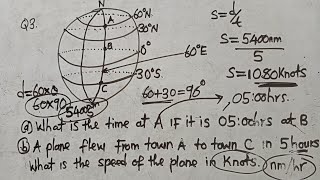 Q3.
N
60°N.
30°N.
0°
30°S.
60°E
A
B
C
S
d=60×θ
60×90
5400nm
S=d/t
S=5400nm
5
S=1080Knots
60+30=90°
05:00hrs.
(a) What is the time at A IF it is 05:00hrs at B
(b) A plane flew from town A to town C in 5 hours
What is the speed of the plane in Knots. (nm/hr)